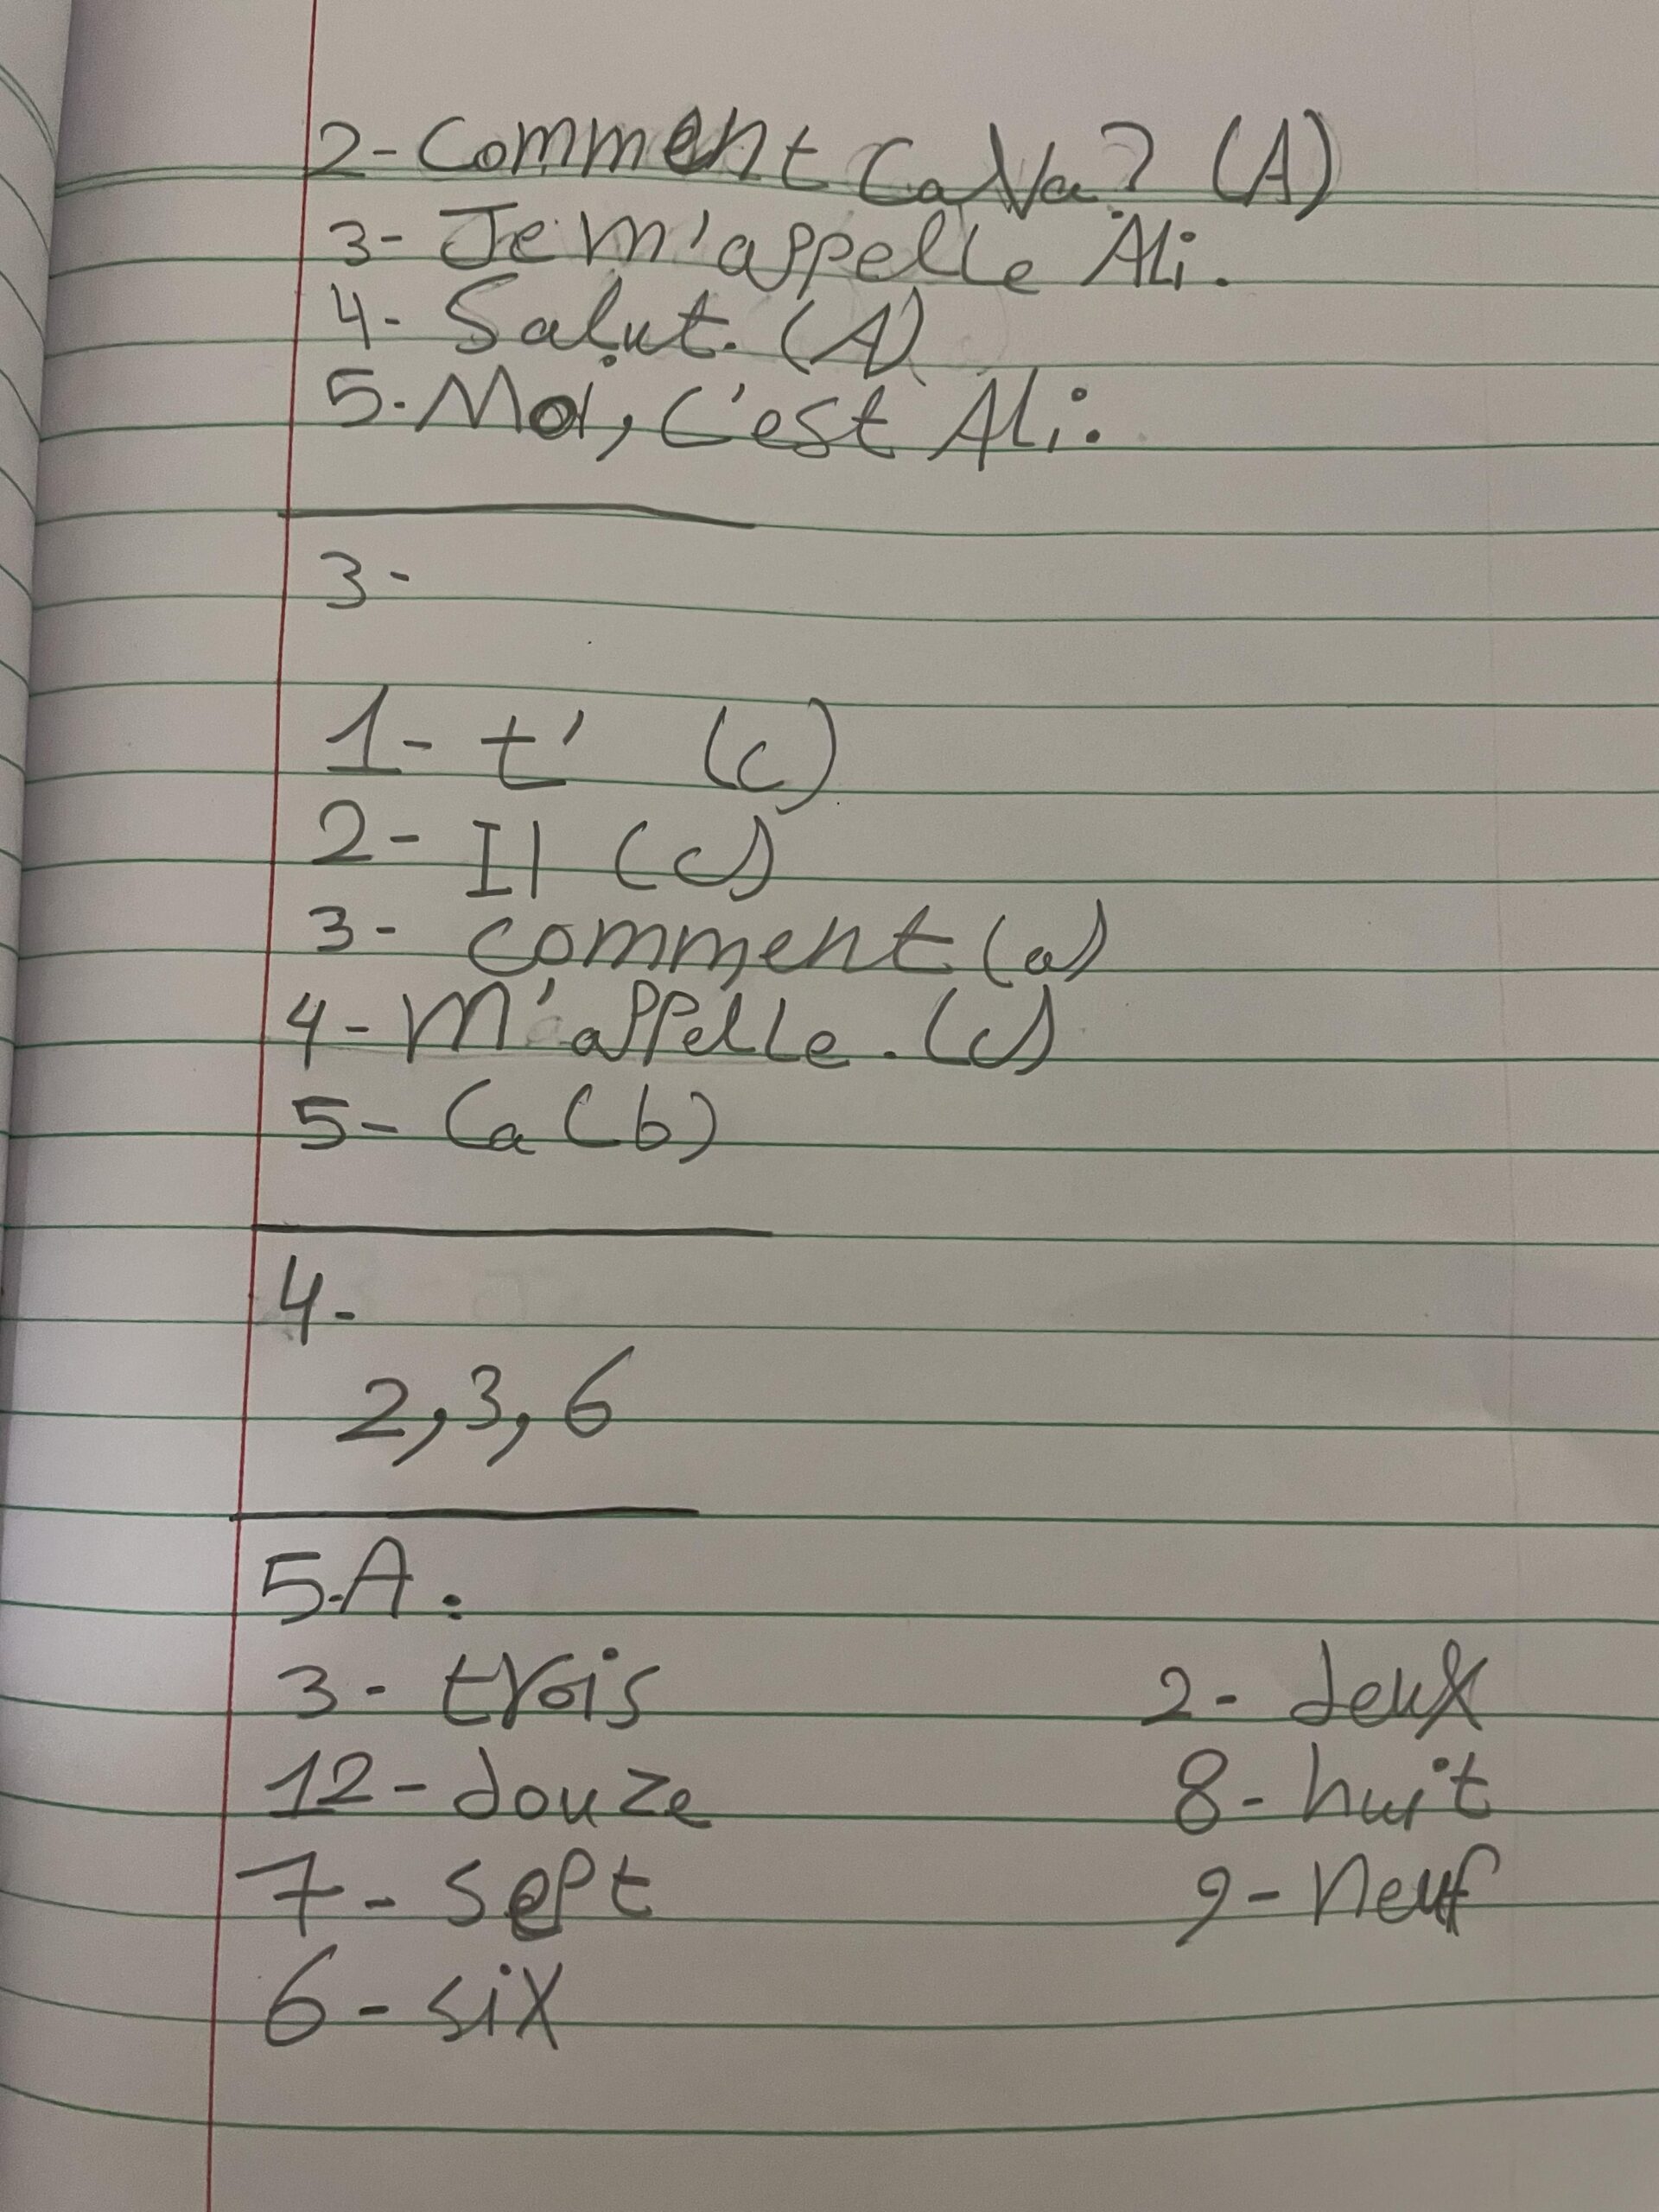 2- Comment Ca Va? (A)
3- Je m'appelle Ali.
4- Salut. (A)
5- Moi, C'est Ali.
3-
1- t' (c)
2- Il (c)
3- comment (a)
4- m'appelle. (c)
5- Ca (b)
4-
2,3,6
5-A.
3- trois 2- deux
12- douze 8- huit
7- sept 9- neuf
6- six